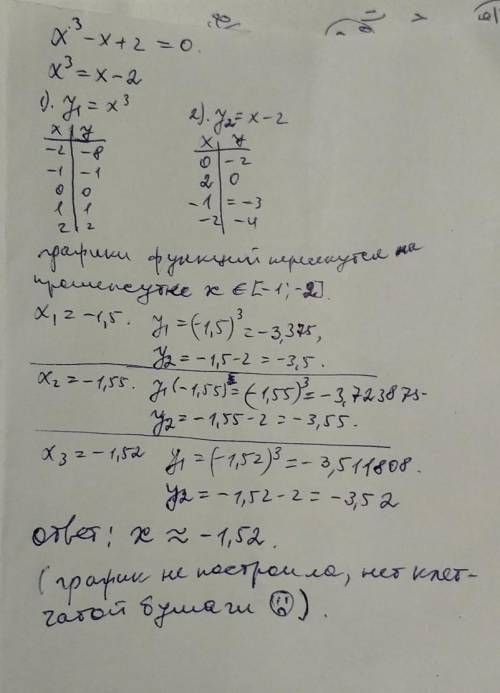 x³ - x + 2 = 0.
x³ = x - 2
1). y₁ = x³
x | y
-2 | -8
-1 | -1
0 | 0
1 | 1
2 | 2
2). y₂ = x - 2
x | y
0 | -2
2 | 0
-1 | = -3
-2 | -4
графики функций пересекутся на
промежутке x ∈ [-1; -2].
x₁ = -1,5. y₁ = (-1,5)³ = -3,375,
y₂ = -1,5 - 2 = -3,5.
x₂ = -1,55. y₁(-1,55) = (-1,55)³ = -3,723875
y₂ = -1,55 - 2 = -3,55.
x₃ = -1,52 y₁ = (-1,52)³ = -3,511808.
y₂ = -1,52 - 2 = -3,52
ответ: x ≈ -1,52.
(график не построила, нет клет-
чатой бумаги ☹).